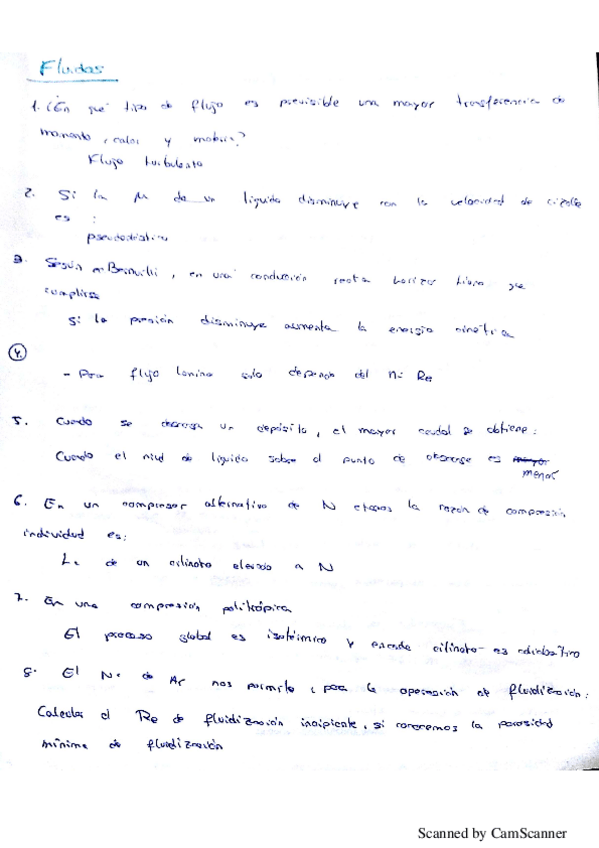 Fluidos
1. ¿En qué tipo de flujo es previsible una mayor transferencia de
momento, calor y materia?
Flujo turbulento
2. Si la μ de un líquido disminuye con la velocidad de cizalla
es :
pseudoplástico
3. Según Bernulli, en una conducción recta horizontal
cumplirse
Si la presión disminuye aumenta la energía cinética
4.
- Para flujo laminar solo depende del Nº Re
5. Cuando se descarga un depósito, el mayor caudal se obtiene:
Cuando el nivel de líquido sobre el punto de descarga es mayor
menor
6. En un compresor alternativo de N etapas la razón de compresión
individual es:
La de un cilindro elevado a N
7. En una compresión politrópica
El proceso global es isotérmico y en cada cilindro es adiabático
8. El Nº de Ar nos permite, para la operación de fluidización:
Calcular el Re de fluidización incipiente, si conocemos la porosidad
mínima de fluidización
Scanned by CamScanner